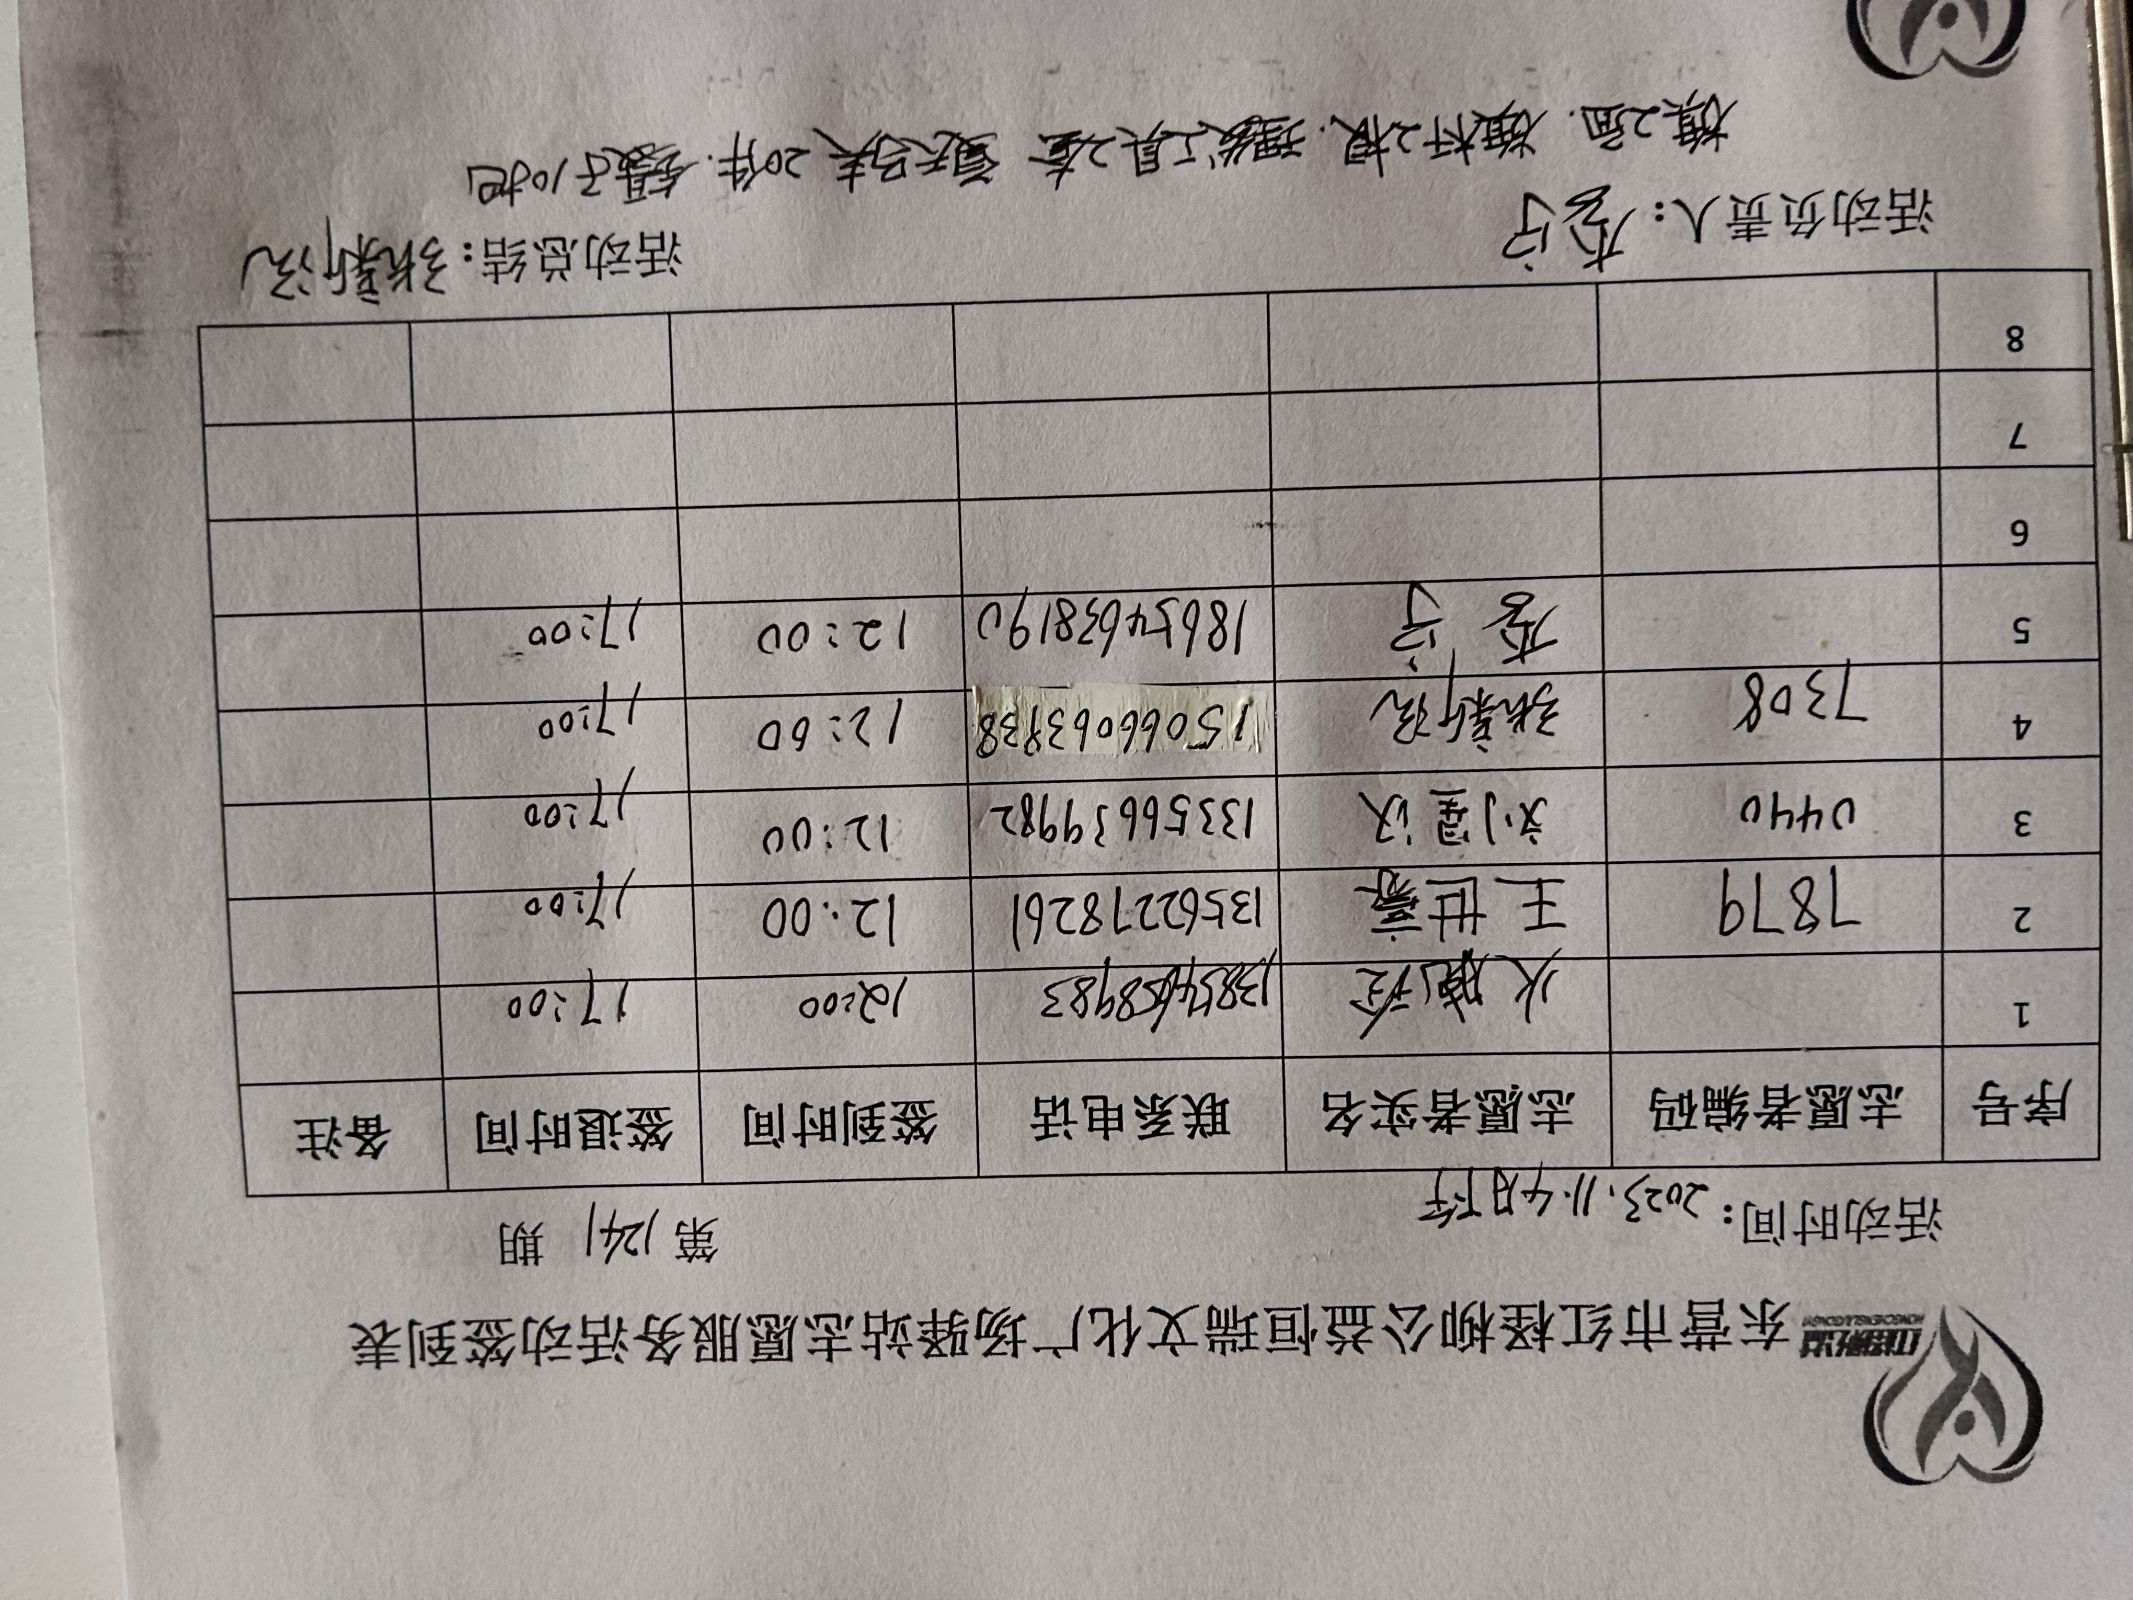 东营市红柽柳公益恒瑞文化广场驿站志愿服务活动签到表
活动时间：2023.11.4日下午 第1241期
序号 志愿者编码 志愿者实名 联系电话 签到时间 签退时间 备注
1 12:00 17:00
2 7879 王世豪 13562278261 12:00 17:00
3 0440 刘星汉 13356639982 12:00 17:00
4 7308 张新流 15066063938 12:00 17:00
5 李宁 18654638190 12:00 17:00
6
7
8
活动负责人：李宁 活动总结：张新流
旗2面.旗杆2根.理发工具2套 夏天马夹20件.镊子10把